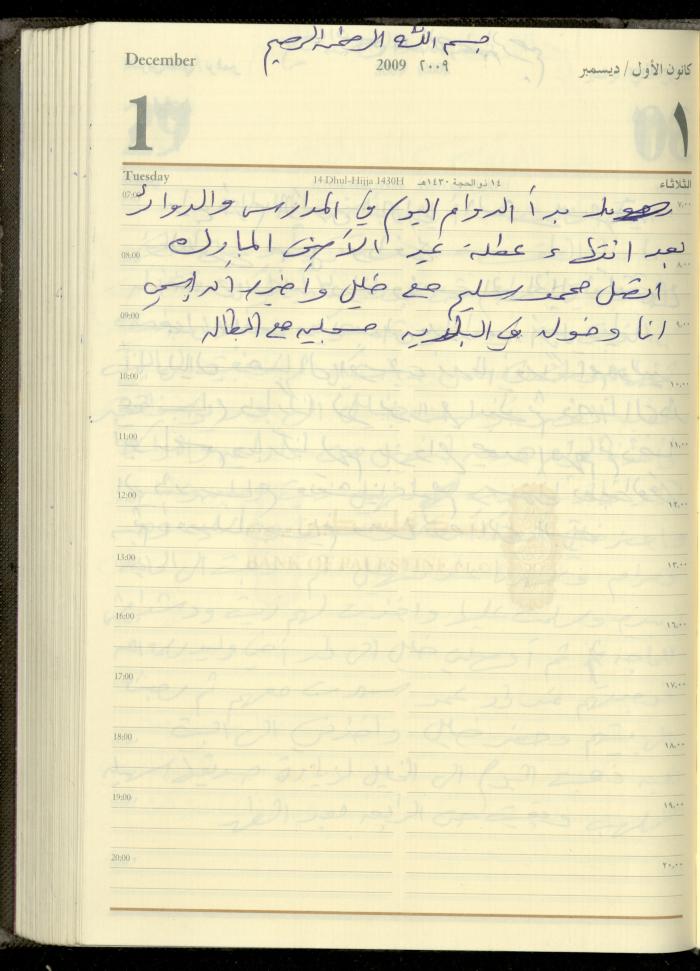 بسم الله الرحمن الرحيم
December
2009 ٢٠٠٩
كانون الأول / ديسمبر
1
١
Tuesday
14 Dhul-Hijja 1430H
١٤ ذو الحجة ١٤٣٠هـ
الثلاثاء
07:00 ٧,٠٠
بدأ الدوام اليوم في المدارس والدوائر
بعد انتهاء عطلة عيد الأضحى المبارك
08:00 ٨,٠٠
اتصل محمود سليم مع خليل وأخبره أن اسمي
09:00 ٩,٠٠
انا وخوله في البلديه مسجليه مع البطاله
10:00 ١٠,٠٠
11:00 ١١,٠٠
12:00 ١٢,٠٠
13:00 ١٣,٠٠
16:00 ١٦,٠٠
17:00 ١٧,٠٠
18:00 ١٨,٠٠
19:00 ١٩,٠٠
20:00 ٢٠,٠٠